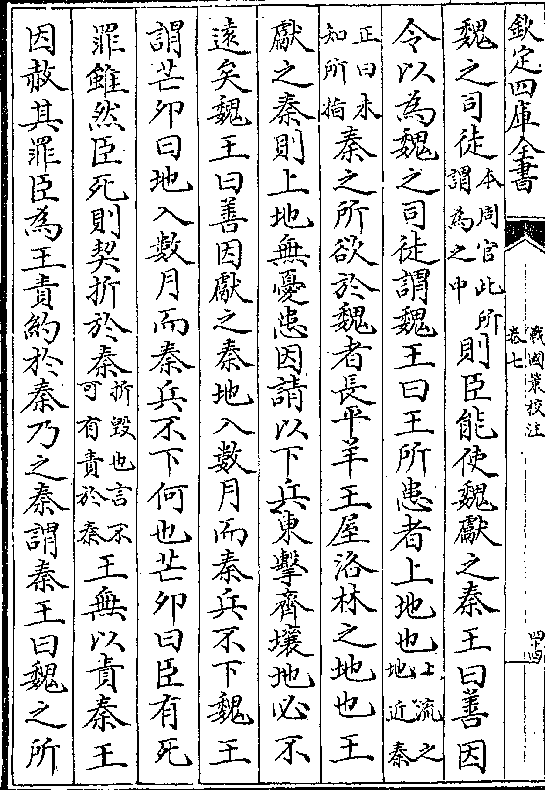 欽定四庫全書
戰國策校注
卷七
四十四
魏之司徒本周官此所謂為之中則臣能使魏獻之秦王曰善因
令以為魏之司徒謂魏王曰王所患者上地也上流之地近秦
正曰未知所指秦之所欲於魏者長平羊王屋洛林之地也王
獻之秦則上地無憂患因請以下兵東擊齊壤地必不
遠矣魏王曰善因獻之秦地入數月而秦兵不下魏王
謂芒卯曰地入數月而秦兵不下何也芒卯曰臣有死
罪雖然臣死則契折於秦折毀也言不可有責於秦王無以責秦王
因赦其罪臣為王責約於秦乃之秦謂秦王曰魏之所